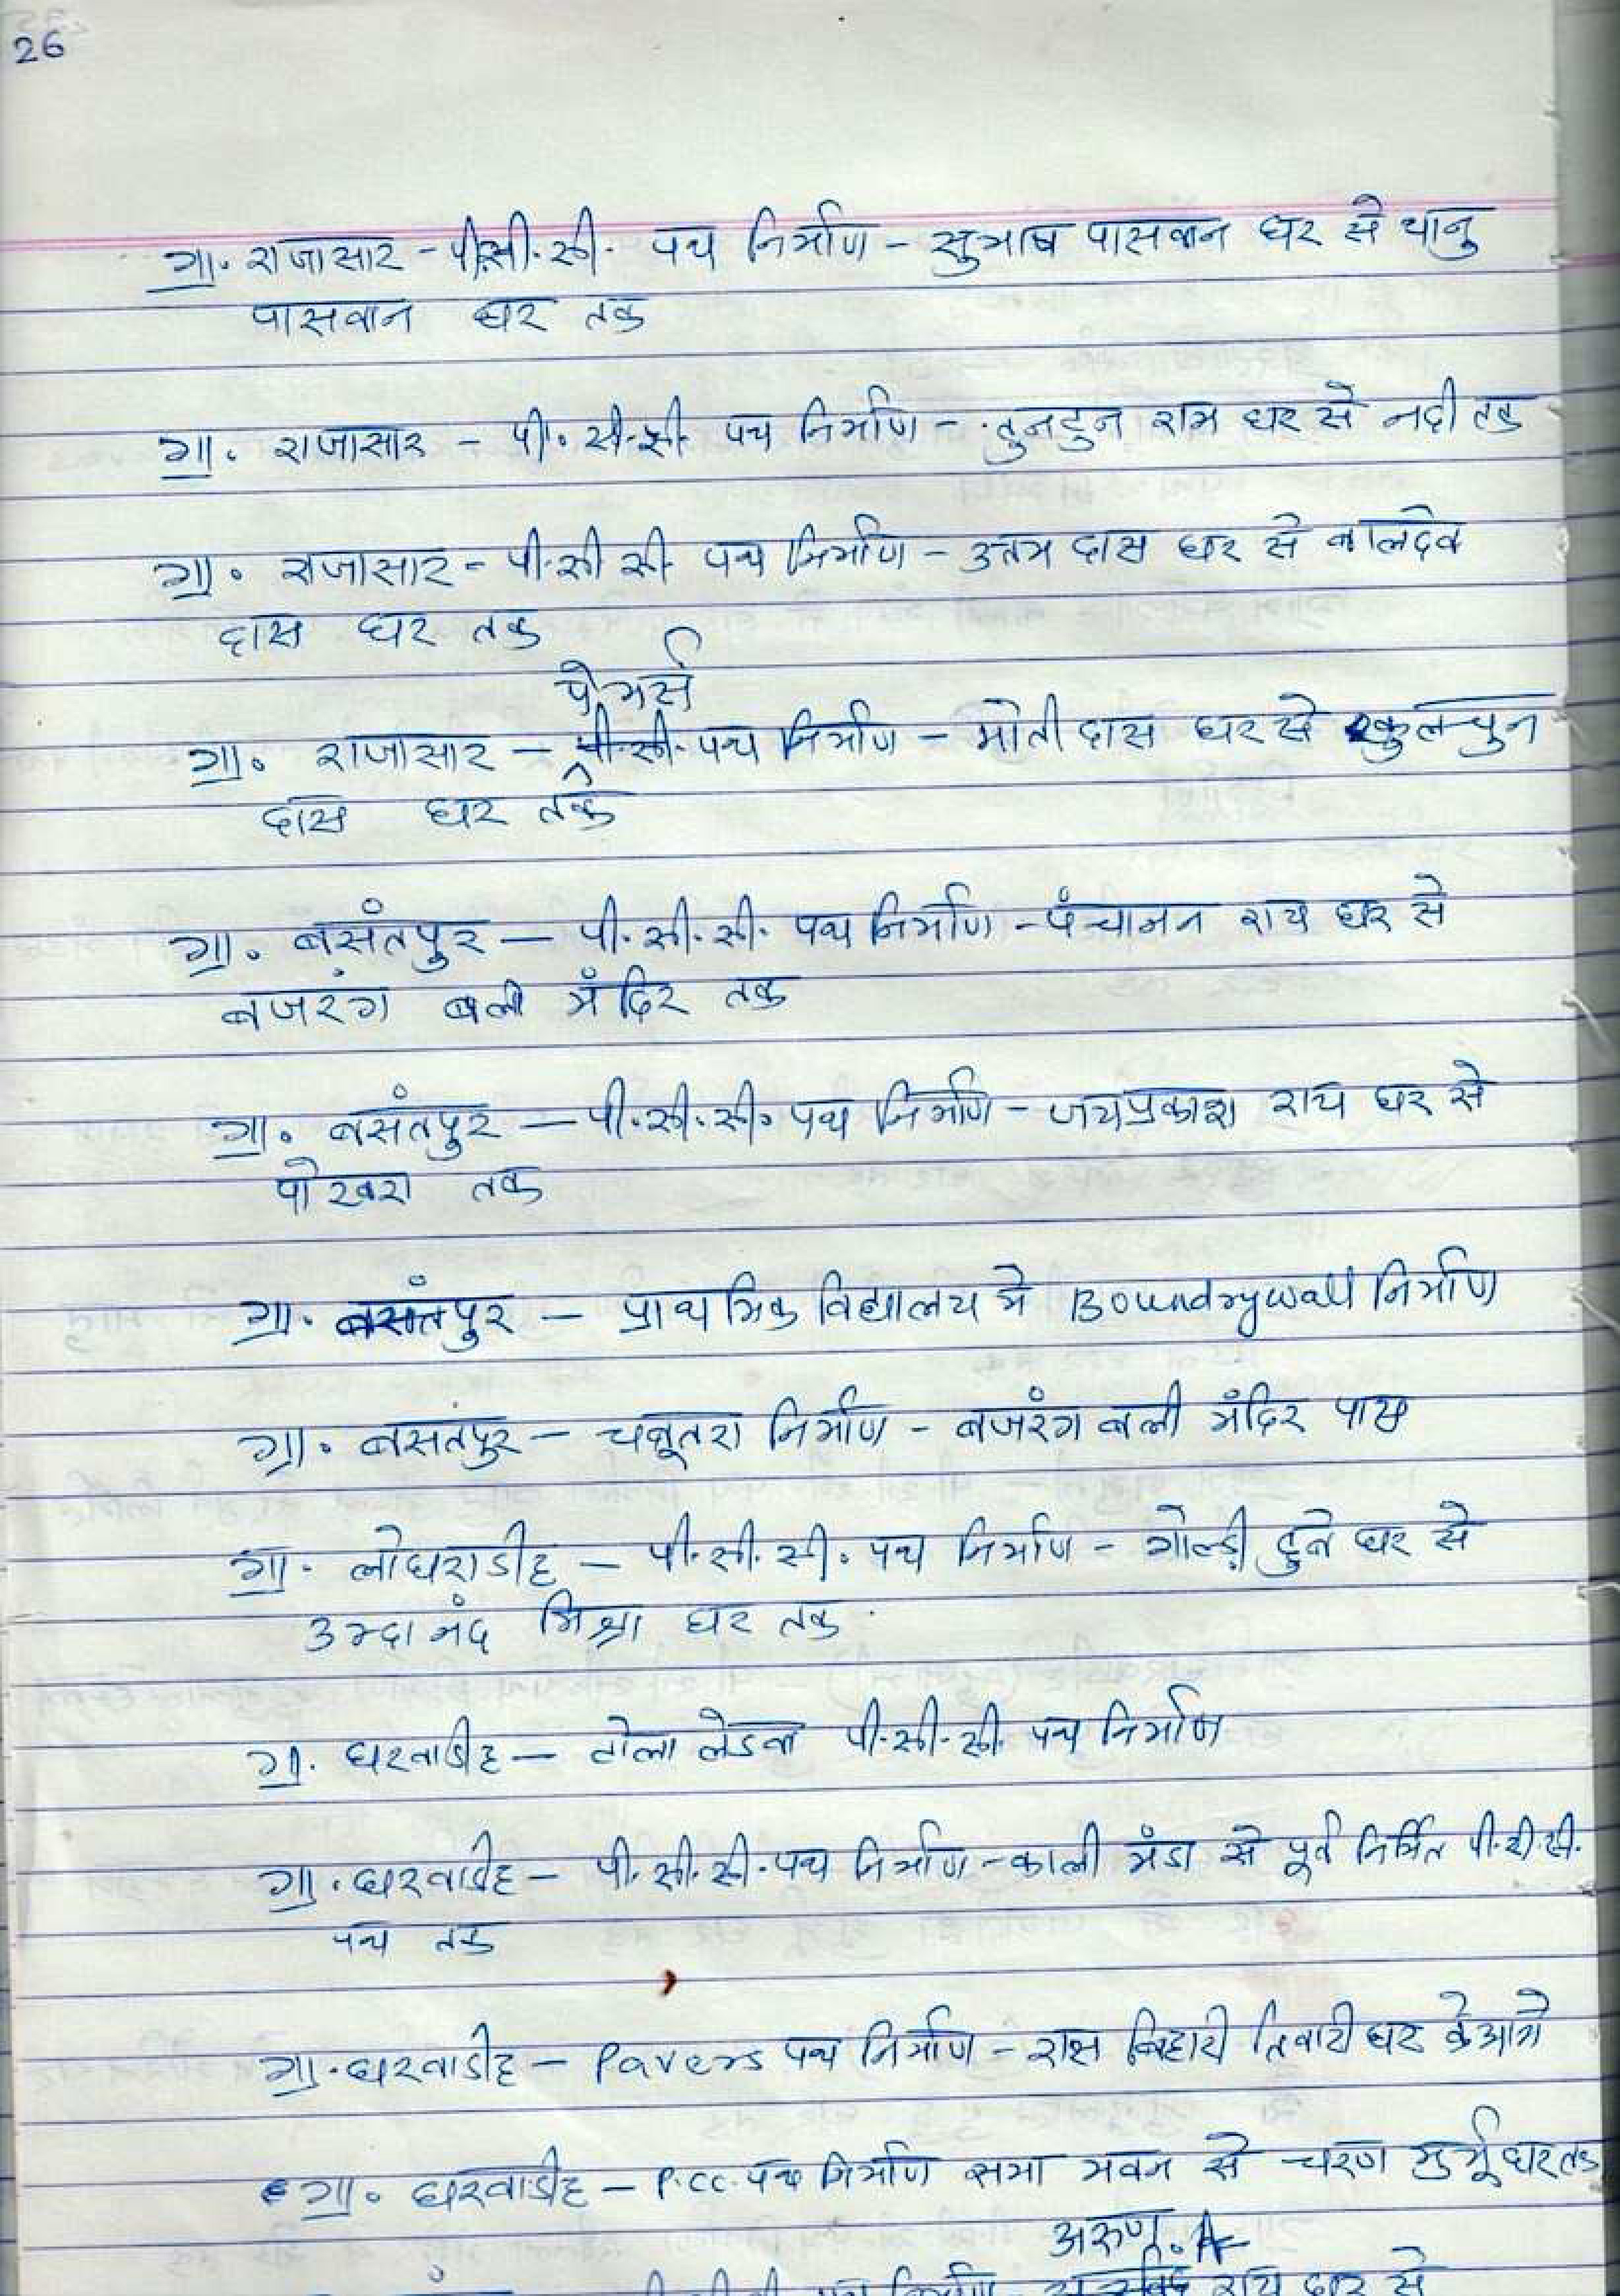 26
ग्रा. राजासार - पी.सी.सी. पथ निर्माण - सुभाष पासवान घर से थानु
पासवान घर तक
ग्रा. राजासार - पी.सी.सी. पथ निर्माण - टुनटुन राम घर से नदी तक
ग्रा. राजासार - पी.सी.सी. पथ निर्माण - उत्तम दास घर से बालदेव
दास घर तक
पेभर्स
ग्रा. राजासार - पी.सी. पथ निर्माण - मोती दास घर से
दास घर तक
ग्रा. बसंतपुर - पी.सी.सी. पथ निर्माण - पंचानन राय घर से
बजरंग बली मंदिर तक
ग्रा. बसंतपुर - पी.सी.सी. पथ निर्माण - जयप्रकाश राय घर से
पोखरा तक
ग्रा. बसंतपुर - प्राथमिक विद्यालय मे Boundrywall निर्माण
ग्रा. बसंतपुर - चबूतरा निर्माण - बजरंग बली मंदिर पास
ग्रा. लोधराडीह - पी.सी.सी. पथ निर्माण - दुबे घर से
मिश्रा घर तक
ग्रा. घरवाडीह - टोला लेडवा पी.सी.सी. पथ निर्माण
ग्रा. घरवाडीह - पी.सी.सी. पथ निर्माण - काली मंडा से पूर्व निर्मित पी.सी.सी.
पथ तक
ग्रा. घरवाडीह - Pavers पथ निर्माण - रास बिहारी तिवारी घर के आगे
ग्रा. घरवाडीह - P.CC. पथ निर्माण सभा भवन से चरण मुर्मू घर तक
अरुण.
राय घर से